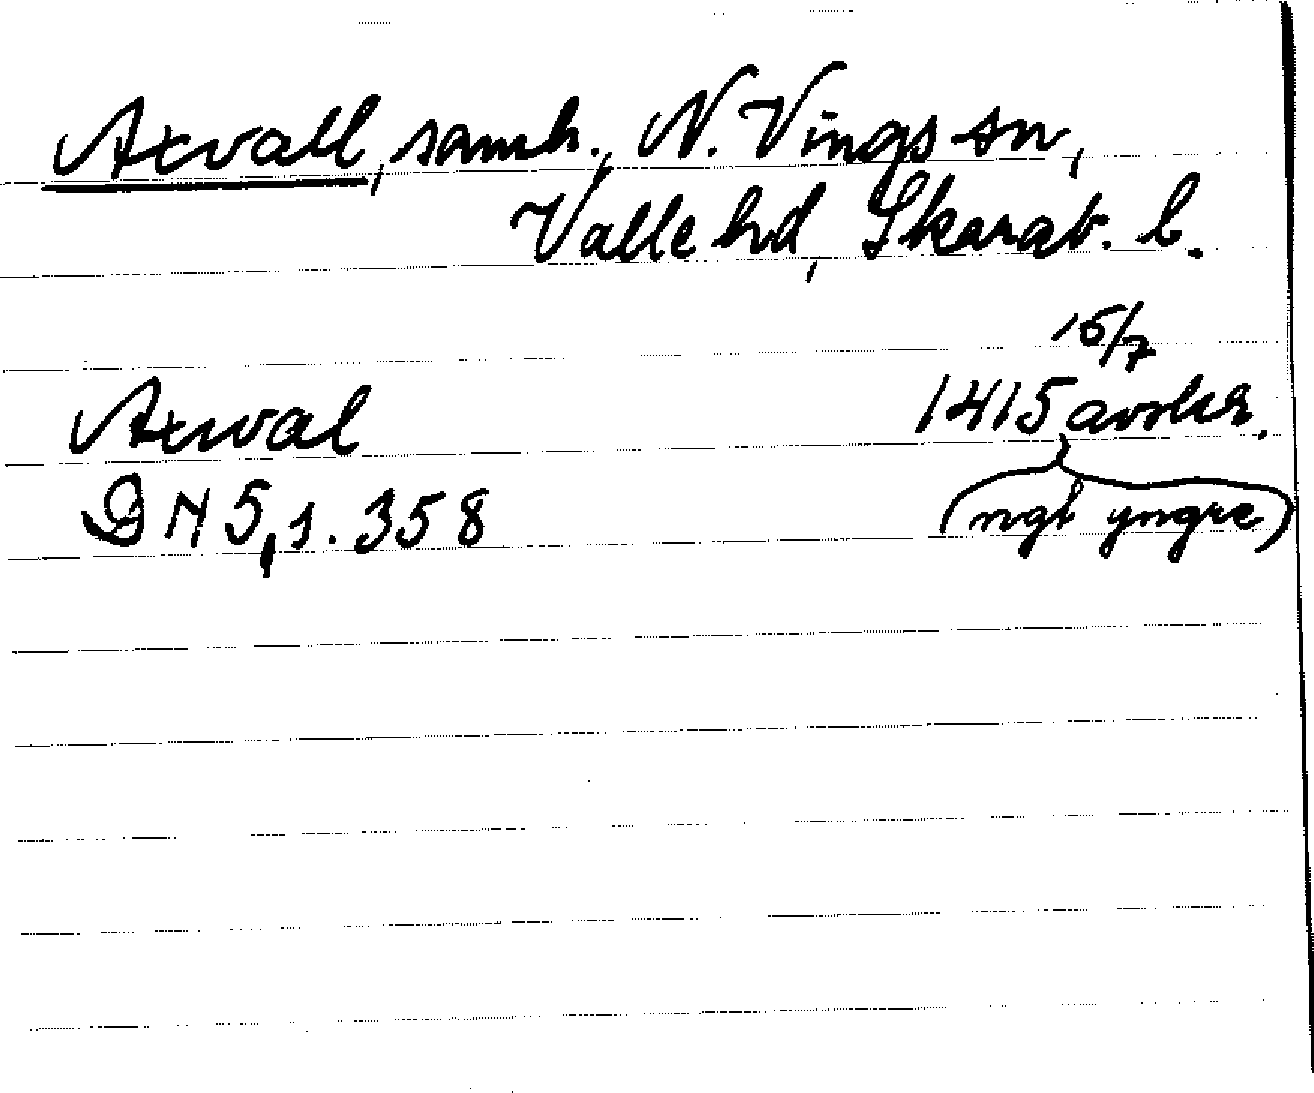 Axvall, samh., N. Vings sn,
Valle hd, Skarab. l.
15/7
Axwal 1415 avskr.
DN 5,1. 358 (ngt yngre)